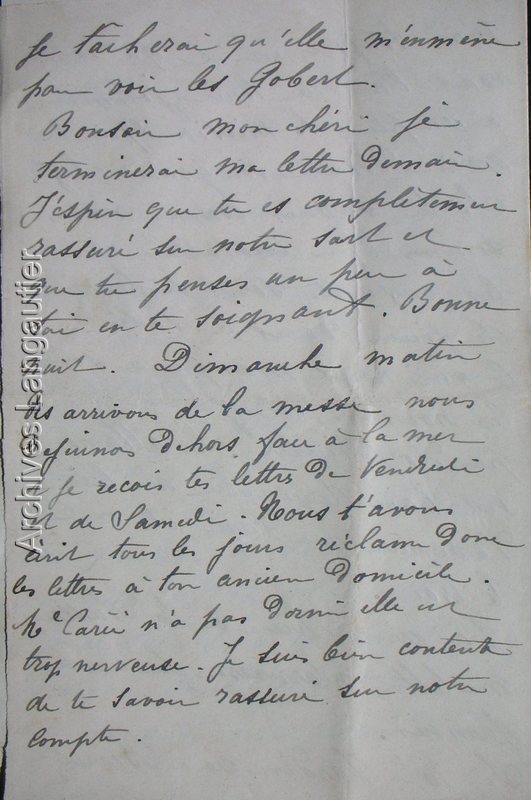 Je tacherai qu'elle m'enmène
pour voir les Gobert.
Bonsoir mon chéri je
terminerai ma lettre demain.
J'éspère que tu es completement
rassuré sur notre sort et
que tu penses un peu à
toi en te soignant. Bonne
nuit. Dimanche matin
arrivons de la messe nous
déjeunons dehors face à la mer
je recois tes lettres de Vendredi
et de Samedi. Nous t'avons
écrit tous les jours réclame donc
les lettres à ton ancien domicile.
Me n'a pas dormi elle est
trop nerveuse. Je suis bien contente
de te savoir rassuré sur notre
compte.
Archives Langautier